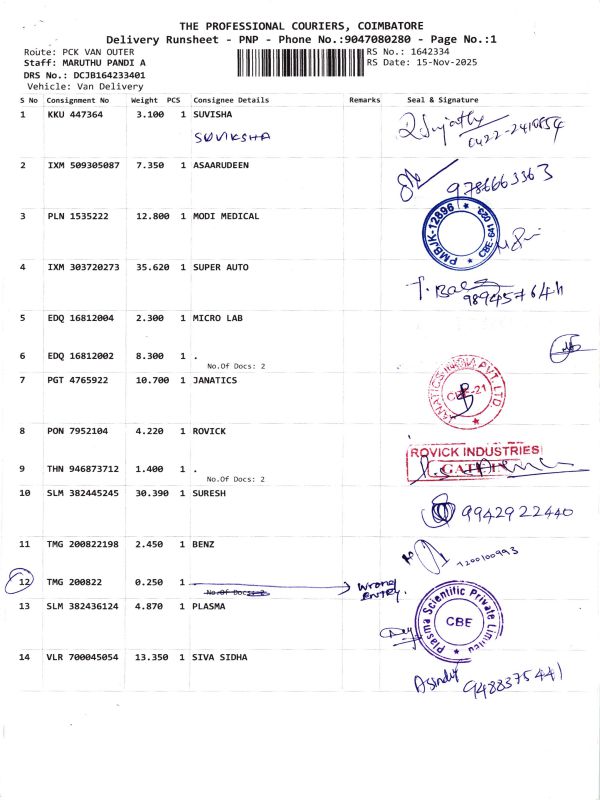 THE PROFESSIONAL COURIERS, COIMBATORE
Delivery Runsheet - PNP - Phone No.:9047080280 - Page No.:1
Route: PCK VAN OUTER RS No.: 1642334
Staff: MARUTHU PANDI A RS Date: 15-Nov-2025
DRS No.: DCJB164233401
Vehicle: Van Delivery
S No Consignment No Weight PCS Consignee Details Remarks Seal & Signature
1 KKU 447364 3.100 1 SUVISHA
SUVIKSHA
2 IXM 509305087 7.350 1 ASAARUDEEN
9786663363
3 PLN 1535222 12.800 1 MODI MEDICAL
PMBJK-12896
4 IXM 303720273 35.620 1 SUPER AUTO
5 EDQ 16812004 2.300 1 MICRO LAB
6 EDQ 16812002 8.300 1 .
No.Of Docs: 2
7 PGT 4765922 10.700 1 JANATICS
JANATICS INDIA PVT. LTD
CBE-21
8 PON 7952104 4.220 1 ROVICK
ROVICK INDUSTRIES
9 THN 946873712 1.400 1 .
No.Of Docs: 2
10 SLM 382445245 30.390 1 SURESH
9942922440
11 TMG 200822198 2.450 1 BENZ
12 TMG 200822 0.250 1
No.Of Docs: 2
Wrong
ENTRY.
13 SLM 382436124 4.870 1 PLASMA
Plasma Scientific Private Limited
CBE
14 VLR 700045054 13.350 1 SIVA SIDHA
9488375441